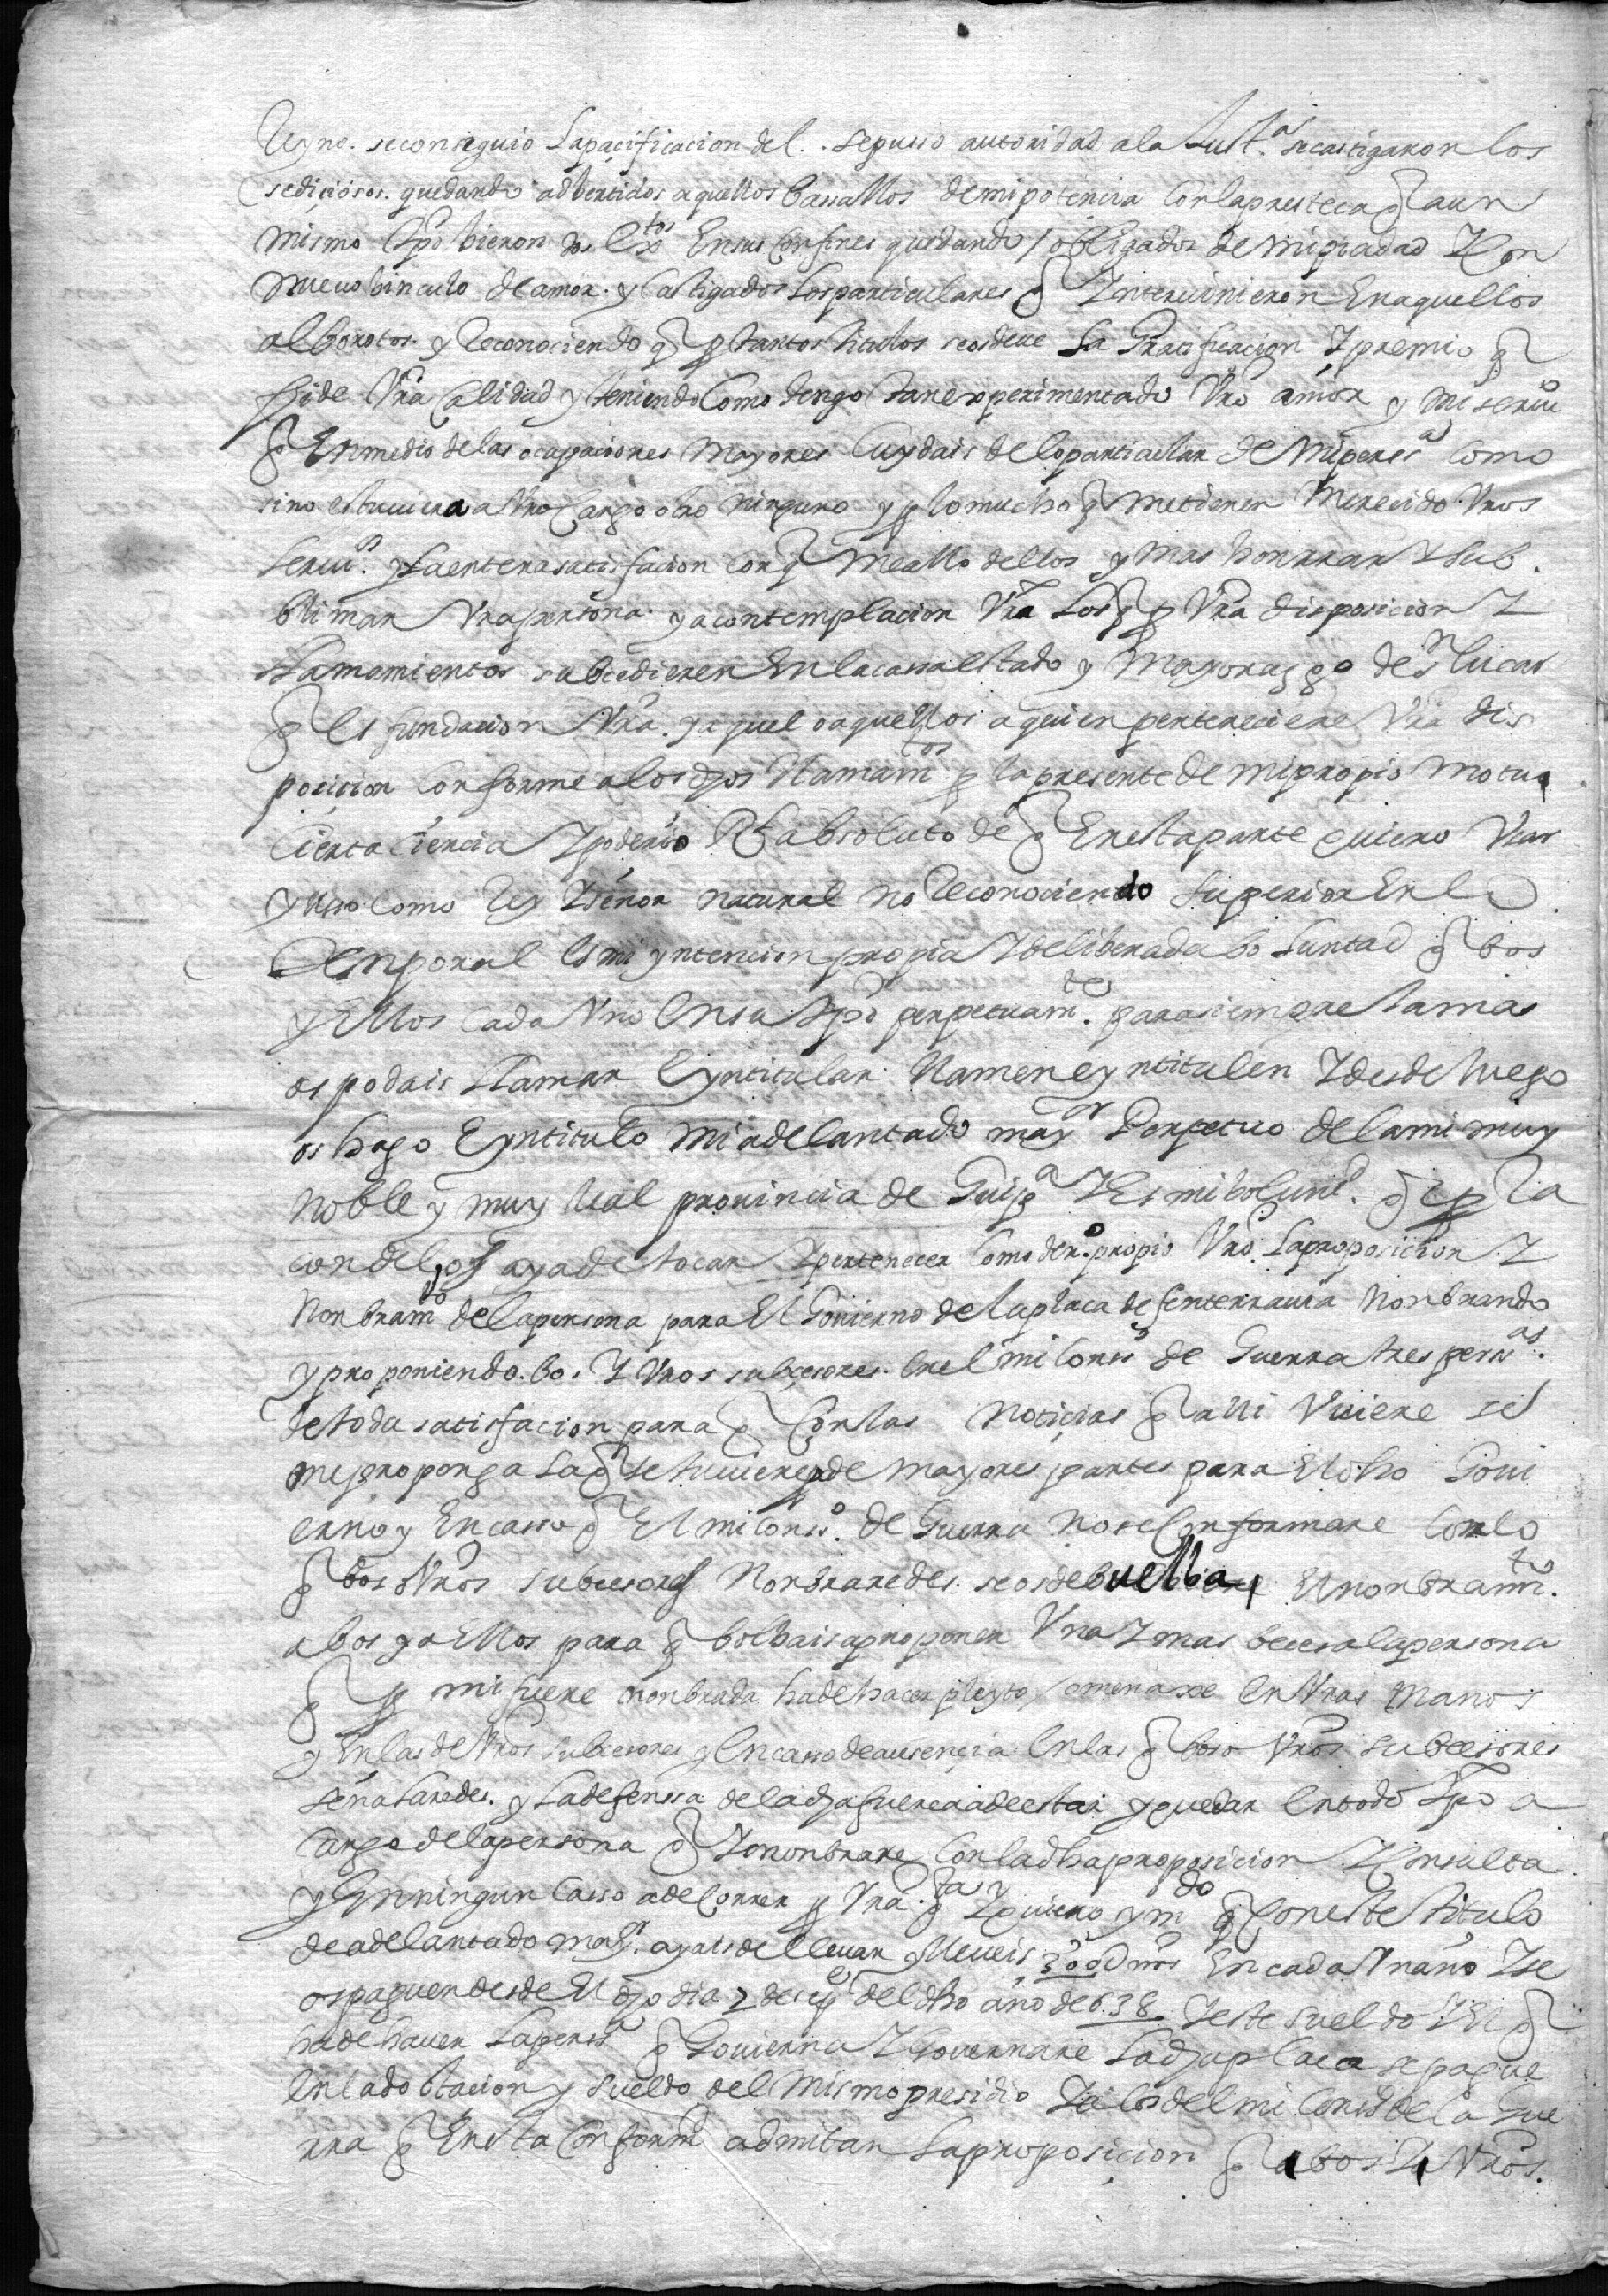 Reyno. se consiguio la pacificacion del. se pusso autoridad a la Just.ª se castigaron los
sediciosos. quedando adbertidos aquellos bassallos de mi potencia con la presteça q̃ a un
mismo tpõ bieron dos exᵗᵒˢ en sus confines quedando obligados de mi piadad y con
nueuo binculo de amor. y castigados los particulares q̃ interuinieron en aquellos
alborotos. y Reconociendo q̃ p tantos titulos se os deue la Gratificacion y premio q̃
pide Vrã calidad y teniendo como tengo tan experimentado Vrõ amor y mi seruiº
q̃ en medio de las ocupaciones mayores cuydais de lo particular de mi persª como
si no estuuiera a Vro cargo otro ninguno y p lo mucho q̃ me tienen merecido Vros
seruiº. y la entera satisfacion con q̃ me allo dellos y mas honrrar y sub.
blimar Vra persona. y a contemplacion Vrã los q̃ p Vrã disposicion y
llamamientos subcedieren en la cassa estado y mayorazgo de Sⁿ lucar
q̃ es fundacion Vrã. y aquel o aquellos a quien perteneciere Vrã dis
posicion conforme a los dhos llamamᵗᵒˢ p la presente de mi propio motu
cierta ciencia y poderio Rˡ absoluto de q̃ en esta parte quiero Vsar
y Vsso como Rey y señor natural no Reconociendo superior en lo
temporal es mi yntencion propia y deliberada boluntad q̃ bos
y ellos cada Vno en su tpõ perpetuamᵗᵉ. para siempre Jamas
os podais llamar e yntitular. llamen e yntitulen y desde luego
os hago e yntitulo mi adelantado mayᵒʳ Perpetuo de la mi muy
noble y muy leal prouincia de Guipª y es mi boluntᵈ. q̃ p Ra
con del os aya de tocar y pertenecer como drº. propio Vrõ. la proposicion y
nonbramᵗᵒ de la persona para el Gouierno de la plaça de fuenterrauia nonbrando
y proponiendo. bos y Vros subcesores. en el mi consº de Guerra tres persᵃˢ.
de toda satisfacion para q̃ con las noticias q̃ alli Vuiere se
me proponga la q̃ se tuuiere p de mayores partes para el dho Goui
erno y en casso q̃ el mi consº. de Guerra no se conformare con lo
q̃ bos o Vrõs subcesores nonbraredes. se os debuelba el nonbramᵗᵒ.
a bos y a ellos para q̃ bolbais a proponer Vna y mas beces a la persona
q̃ p mi fuere nonbrada ha de hacer pleyto omenaxe en Vras manos
y en las de Vrõs subcesores y en casso de ausencia en las q̃ bos o Vrõs subcesores
señalaredes. y la defenssa de la dha fuerça a de estar y quedar en todo tpõ a
cargo de la persona q̃ yo nonbrare con la dha proposicion y consulta
y en ningun casso a de correr p Vrã. qᵗᵃ y quiero y mᵈᵒ q̃ con este titulo
de adelantado mayᵒʳ. ayais de lleuar y lleueis 300U mrs en cada Vn año y se
os paguen desde el dho dia 7 de sepᵉ del dho año de 638. y este sueldo y el q̃
ha de hauer la persª q̃ Gouierna y Gouernare la dha plaça se pague
en la dotacion y sueldo del mismo presidio y a los del mi consº de la Gue
rra q̃ en esta conformᵈ admitan la proposicion q̃ a bos y a Vrõs.